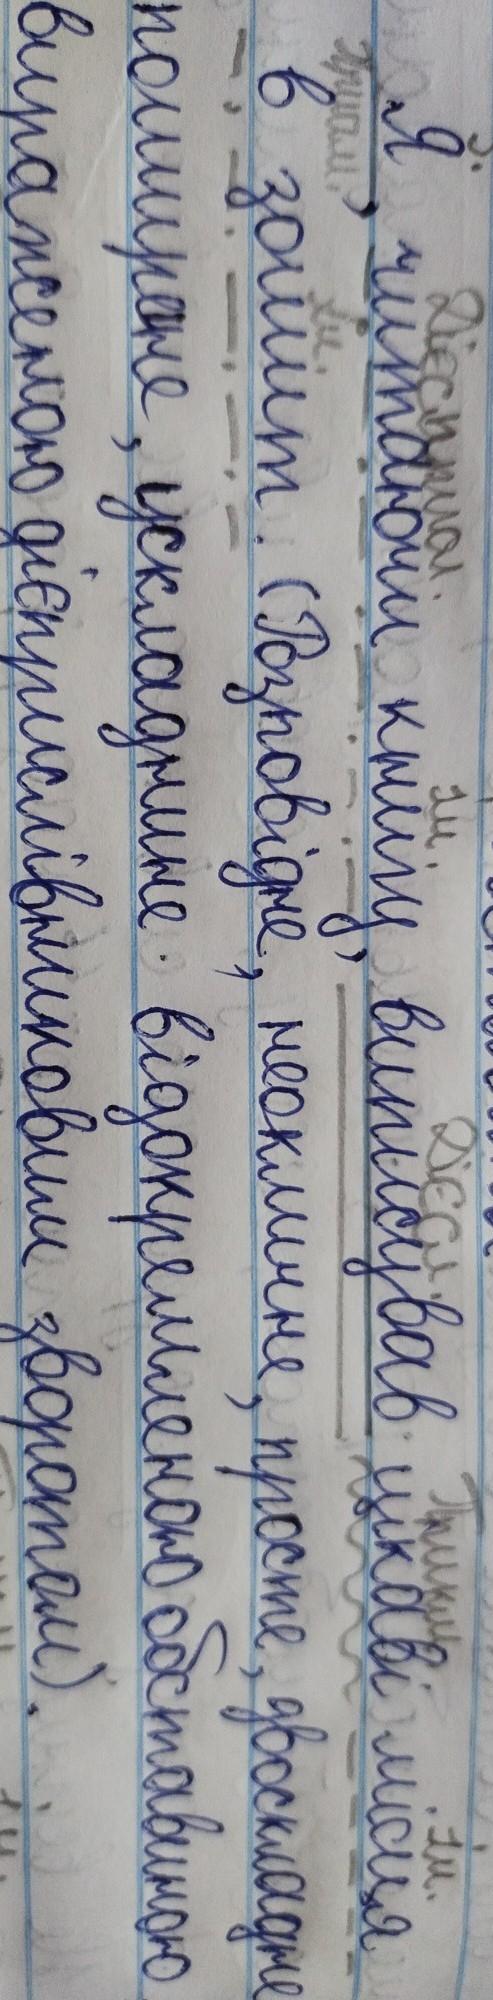 З. Дієприсл. Ім. Дієсл. Прикм. Ім.
Я, читаючи книгу, виписував цікаві місця
Прийм. Ім.
в зошит. (Розповідне, неокличне, просте, двоскладне
поширене, ускладнине відокремленою обставиною
вираженою дієприслівниковим зворотам).